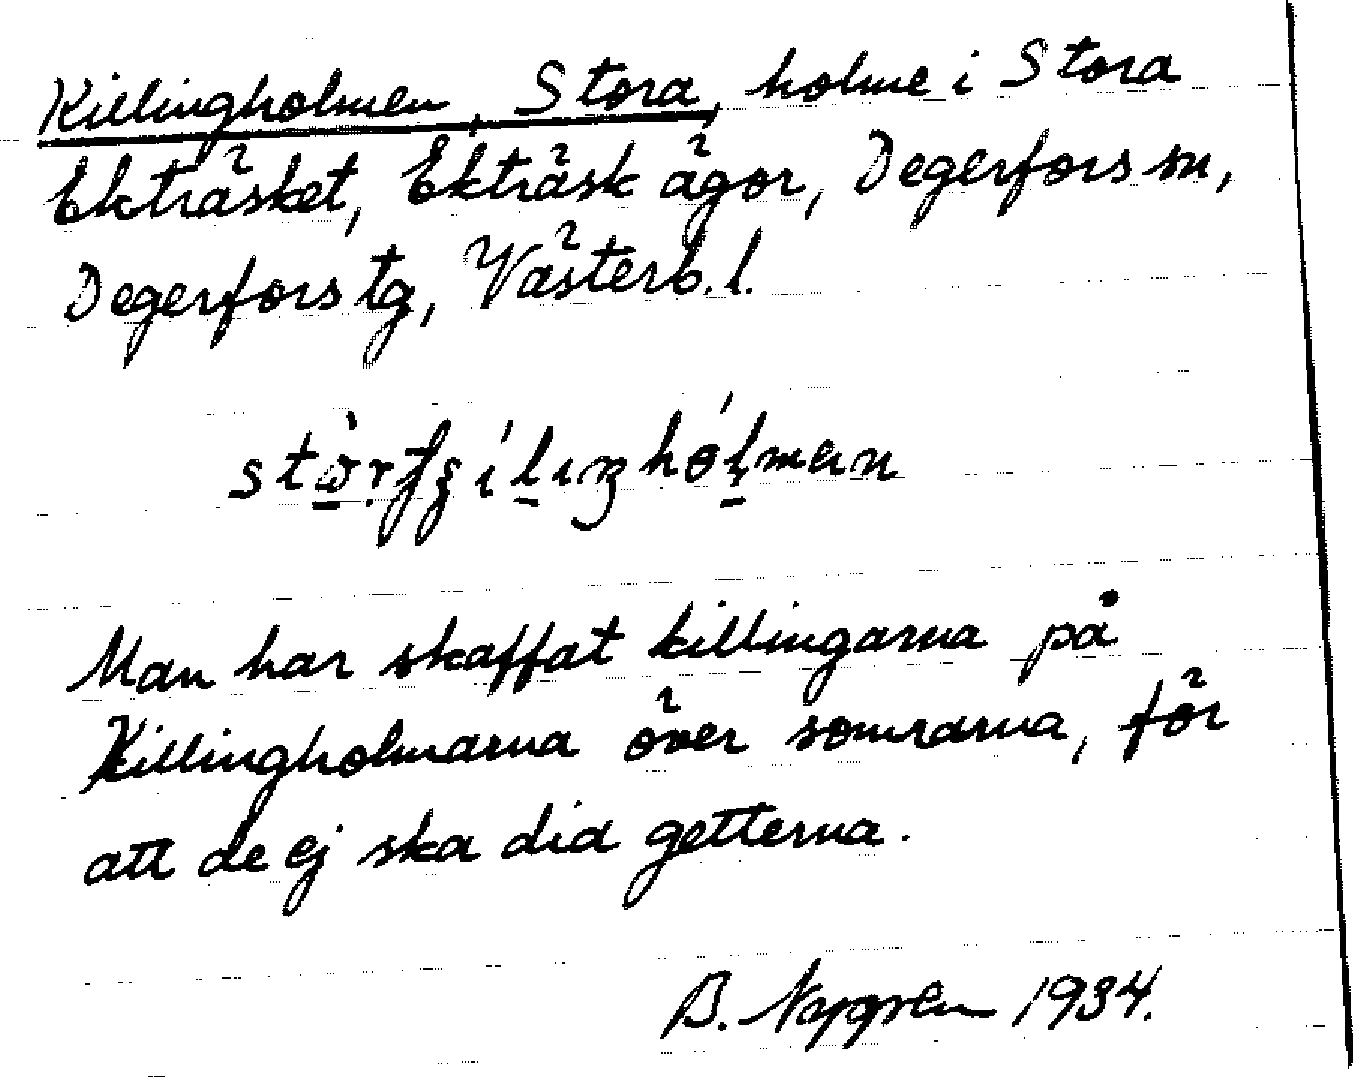 Killingholmen, Stora, holme i Stora
Ekträsket, Ekträsk ägor, Degerfors sn,
Degerfors tg, Västerb. l.
Man har skaffat killingarna på
Killingholmarna över somrarna, för
att de ej ska did getterna.
B. Nygren 1934.